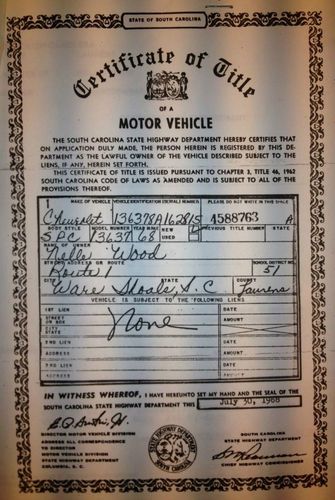 STATE OF SOUTH CAROLINA
Certificate of Title
OF A
MOTOR VEHICLE
THE SOUTH CAROLINA STATE HIGHWAY DEPARTMENT HEREBY CERTIFIES THAT
ON APPLICATION DULY MADE, THE PERSON HEREIN IS REGISTERED BY THIS DE-
PARTMENT AS THE LAWFUL OWNER OF THE VEHICLE DESCRIBED SUBJECT TO THE
LIENS, IF ANY, HEREIN SET FORTH.
THIS CERTIFICATE OF TITLE IS ISSUED PURSUANT TO CHAPTER 3, TITLE 46, 1962
SOUTH CAROLINA CODE OF LAWS AS AMENDED AND IS SUBJECT TO ALL OF THE
PROVISIONS THEREOF.
1 MAKE OF VEHICLE VEHICLE IDENTIFICATION (SERIAL) NUMBER PLEASE DO NOT WRITE IN THIS SPACE
Chevrolet 136378A162815 4588763 A
BODY STYLE MODEL NUMBER YEAR MAKE NEW USED PREVIOUS TITLE NUMBER STATE
SPC 13637 68
NAME OF OWNER
Nello Wood
STREET ADDRESS OR ROUTE SCHOOL DISTRICT NO.
Route 1 51
CITY COUNTY
Ware Shoals, S.C Laurens
VEHICLE IS SUBJECT TO THE FOLLOWING LIENS
1ST LIEN DATE
STREET OR BOX AMOUNT
CITY STATE
None
2ND LIEN DATE
ADDRESS AMOUNT
3RD LIEN DATE
ADDRESS AMOUNT
IN WITNESS WHEREOF, I HAVE HEREUNTO SET MY HAND AND THE SEAL OF THE
SOUTH CAROLINA STATE HIGHWAY DEPARTMENT THIS July 30, 1968
DIRECTOR MOTOR VEHICLE DIVISION
ADDRESS ALL CORRESPONDENCE
TO DIRECTOR
MOTOR VEHICLE DIVISION
STATE HIGHWAY DEPARTMENT
COLUMBIA, S. C.
SOUTH CAROLINA
STATE HIGHWAY DEPARTMENT
CHIEF HIGHWAY COMMISSIONER